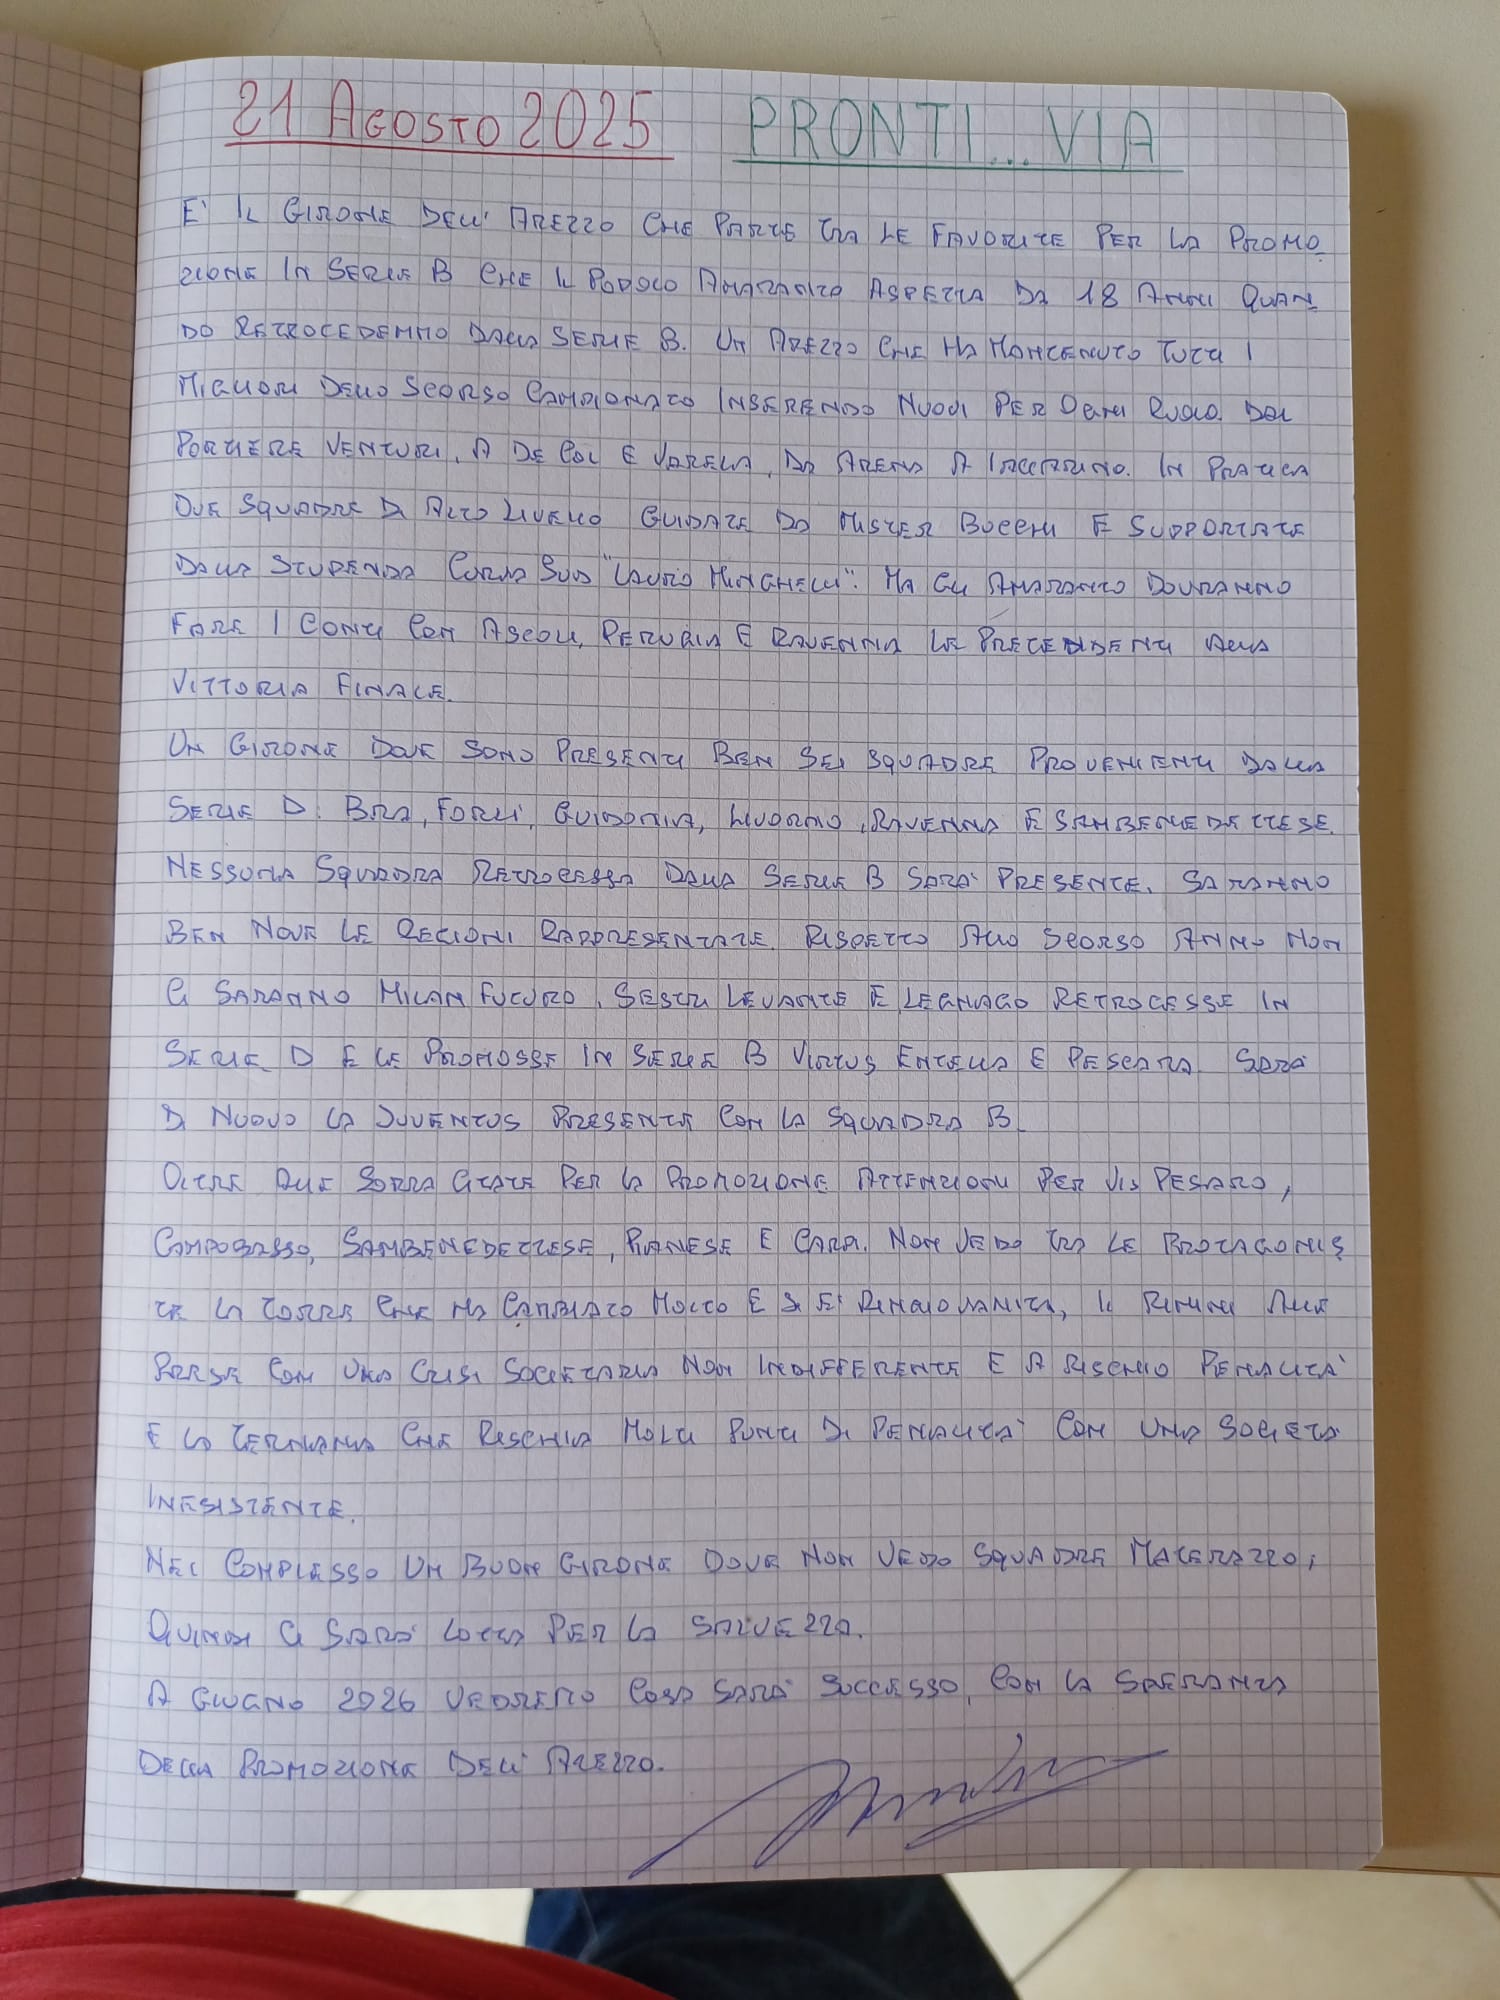 21 AGOSTO 2025 PRONTI... VIA
E' IL GIRONE DELL' AREZZO CHE PARTE TRA LE FAVORITE PER LA PROMO
ZIONE IN SERIE B CHE IL POPOLO AMARANTO ASPETTA DA 18 ANNI QUAN
DO RETROCEDEMMO DALLA SERIE B. UN AREZZO CHE HA MANTENUTO TUTTI I
MIGLIORI DELLO SCORSO CAMPIONATO INSERENDO NUOVI PER OGNI RUOLO. DAL
PORTIERE VENTURI, A DE COL E VARELA, DA ARENA A IACCARINO. IN PRATICA
DUE SQUADRE DI ALTO LIVELLO GUIDATE DA MISTER BUCCHI E SUPPORTATE
DALLA STUPENDA CURVA SUD "LAURO MINGHELLI". MA GLI AMARANTO DOVRANNO
FARE I CONTI CON ASCOLI, PERUGIA E RAVENNA LE PRECENDENTI ALLA
VITTORIA FINALE.
UN GIRONE DOVE SONO PRESENTI BEN SEI SQUADRE PROVENIENTI DALLA
SERIE D: BRA, FORLI', GUIDONIA, LIVORNO, RAVENNA E SAMBENEDETTESE.
NESSUNA SQUADRA RETROCESSA DALLA SERIE B SARA' PRESENTE. SARANNO
BEN NOVE LE REGIONI RAPPRESENTATE. RISPETTO ALLO SCORSO ANNO NON
CI SARANNO MILAN FUTURO, SESTRI LEVANTE E LEGNAGO RETROCESSE IN
SERIE D E LE PROMOSSE IN SERIE B VIRTUS ENTELLA E PESCARA. SARA'
DI NUOVO LA JUVENTUS PRESENTE CON LA SQUADRA B.
OLTRE ALLE SOPRA CITATE PER LA PROMOZIONE ATTENZIONI PER VIS PESARO,
CAMPOBASSO, SAMBENEDETTESE, PIANESE E CARPI. NON VEDO TRA LE PROTAGONIS
TE LA TORRES CHE HA CAMBIATO MOLTO E SI E' RINGIOVANITA, IL RIMINI ALLE
PRESE CON UNA CRISI SOCIETARIA NON INDIFFERENTE E A RISCHIO PENALITA'
E LA TERNANA CHE RISCHIA MOLTI PUNTI DI PENALITA' CON UNA SOCIETA'
INESISTENTE.
NEL COMPLESSO UN BUON GIRONE DOVE NON VEDO SQUADRE MATERAZZO,
QUINDI CI SARA' LOTTA PER LA SALVEZZA.
A GIUGNO 2026 VEDREMO COSA SARA' SUCCESSO, CON LA SPERANZA
DELLA PROMOZIONE DELL' AREZZO.